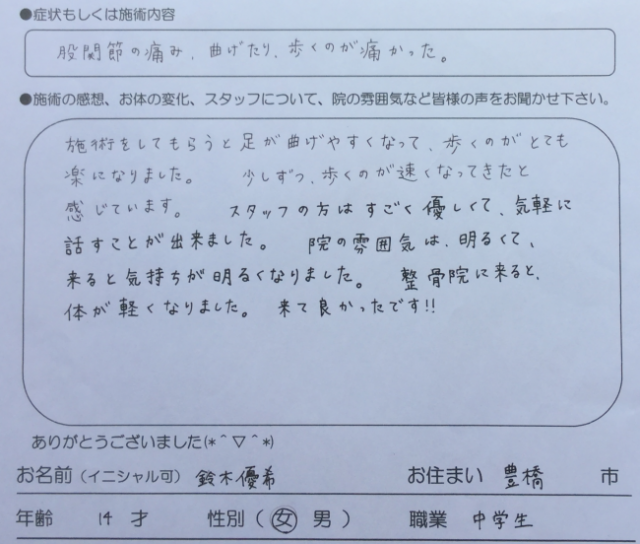 ●症状もしくは施術内容
股関節の痛み、曲げたり、歩くのが痛かった。
●施術の感想、お体の変化、スタッフについて、院の雰囲気など皆様の声をお聞かせ下さい。
施術をしてもらうと足が曲げやすくなって、歩くのがとても
楽になりました。 少しずつ、歩くのが速くなってきたと
感じています。 スタッフの方はすごく優しくて、気軽に
話すことが出来ました。 院の雰囲気は、明るくて、
来ると気持ちが明るくなりました。 整骨院に来ると、
体が軽くなりました。 来て良かったです!!
ありがとうございました(*＾▽＾*)
お名前（イニシャル可） 鈴木優希 お住まい 豊橋 市
年齢 14 才 性別（ 女 男 ） 職業 中学生